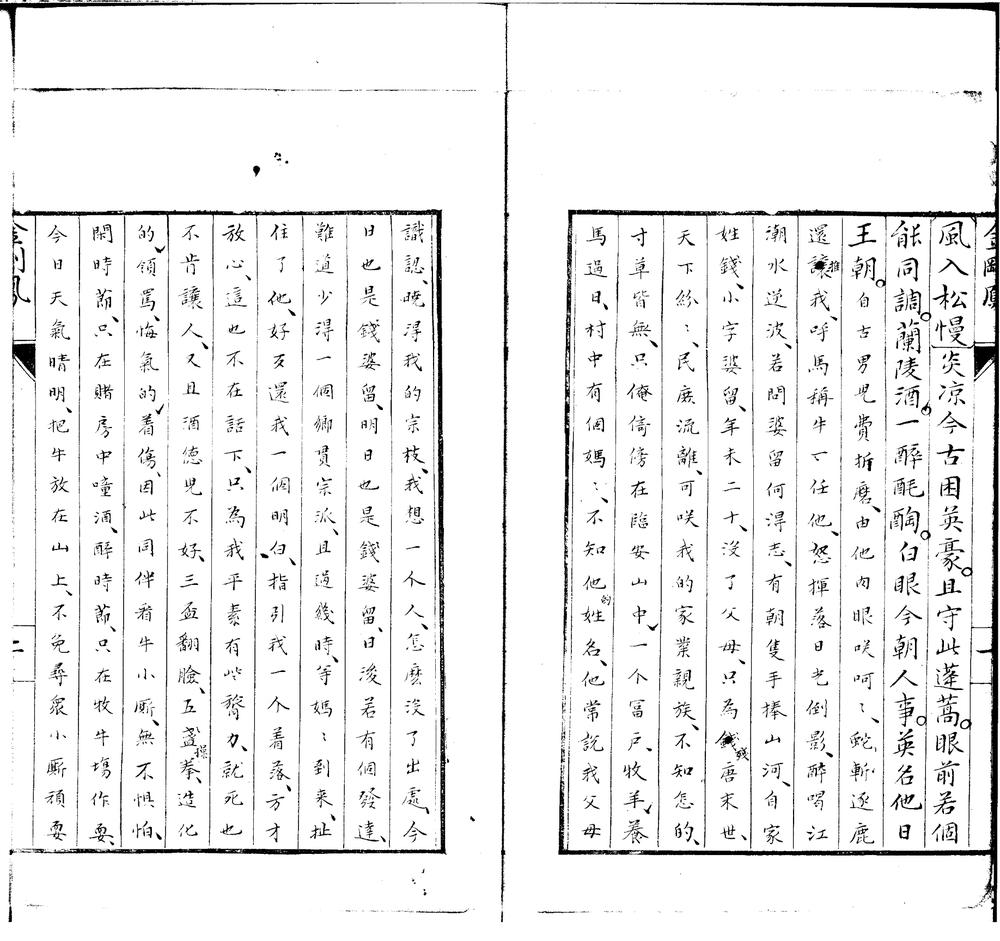 金剛鳳
一
風入松慢炎凉今古困英豪且守此蓬蒿眼前若個
能同調蘭陵酒一醉酕醄白眼今朝人事英名他日
王朝自古男兒費折磨由他肉眼咲呵〻蛇斬逐鹿
還讓推我呼馬稱牛一任他怒揮落日光倒影醉喝江
潮水逆波若問婆留何淂志有朝隻手捧山河自家
姓錢小字婆留年未二十没了父母只為錢殘唐末世
天下紛〻民庶流離可咲我的家業親族不知怎的
寸草皆無只俺倚傍在臨安山中一个富戸牧羊養
馬過日村中有個媽〻不知他的姓名他常説我父母
識認曉淂我的宗枝我想一个人怎麽没了出處今
日也是錢婆留明日也是錢婆留日後若有個發達
難道少淂一個鄉貫宗派且過幾時等媽〻到來扯
住了他好歹還我一個明白指引我一个着落方才
放心這也不在話下只為我平素有些膂力就死也
不肯讓人又且酒德兒不好三盃翻臉五盞揮拳造化
的領罵悔氣的着傷因此同伴看牛小厮無不惧怕
閑時莭只在賭房中噇酒醉時莭只在牧牛塲作耍
今日天氣晴明把牛放在山上不免尋衆小厮頑耍
金剛鳳
二